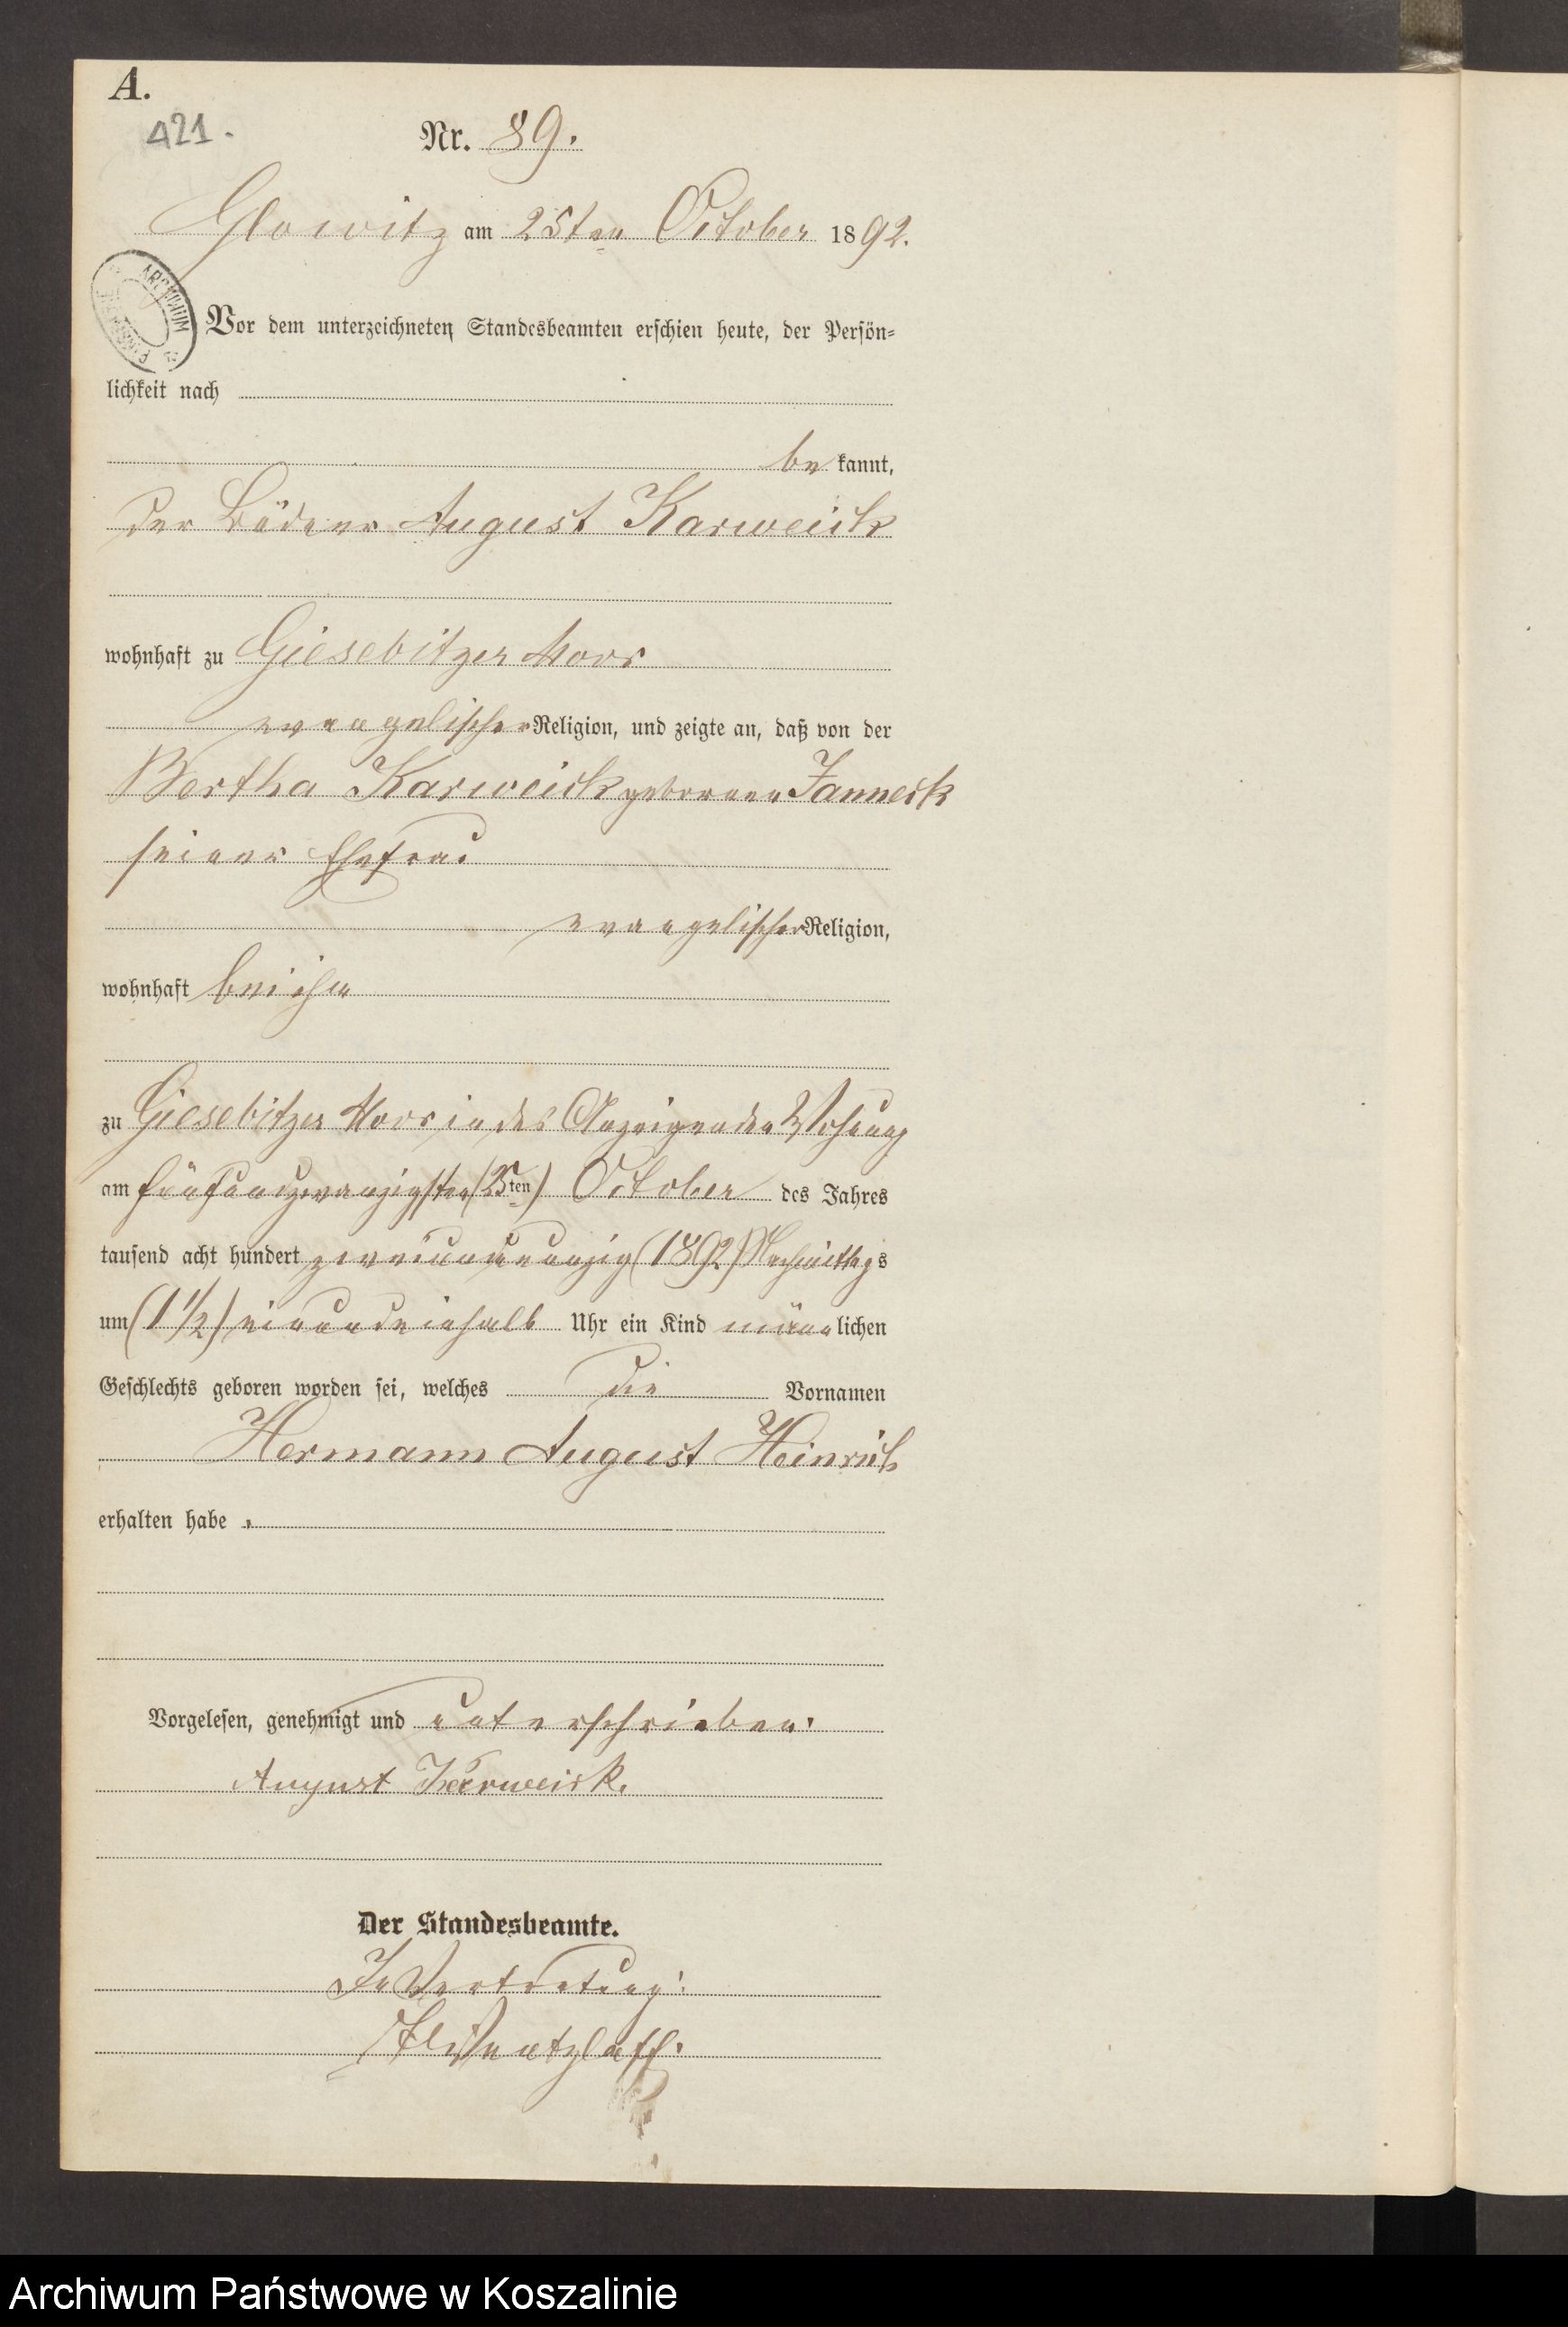 A.
421.
Nr. 89.
Glowitz am 25ten October 1892.
ARCHIWUM
Vor dem unterzeichneten Standesbeamten erschien heute, der Persön-
lichkeit nach
be kannt,
der Büdner August Karweick
wohnhaft zu Giesebitzer Moor
evangelischer Religion, und zeigte an, daß von der
Bertha Karweick geborenen Janneck
seiner Ehefrau
evangelischer Religion,
wohnhaft bei ihm
zu Giesebitzer Moor, in des Anzeigenden Wohnung
am fünfundzwanzigsten (25ten) October des Jahres
tausend acht hundert zweiundneunzig (1892) Nachmittags
um (1 1/2) einundeinhalb Uhr ein Kind männlichen
Geschlechts geboren worden sei, welches die Vornamen
Hermann August Heinrich
erhalten habe.
Vorgelesen, genehmigt und unterschrieben.
August Karweick.
Der Standesbeamte.
In Vertretung:
Archiwum Państwowe w Koszalinie